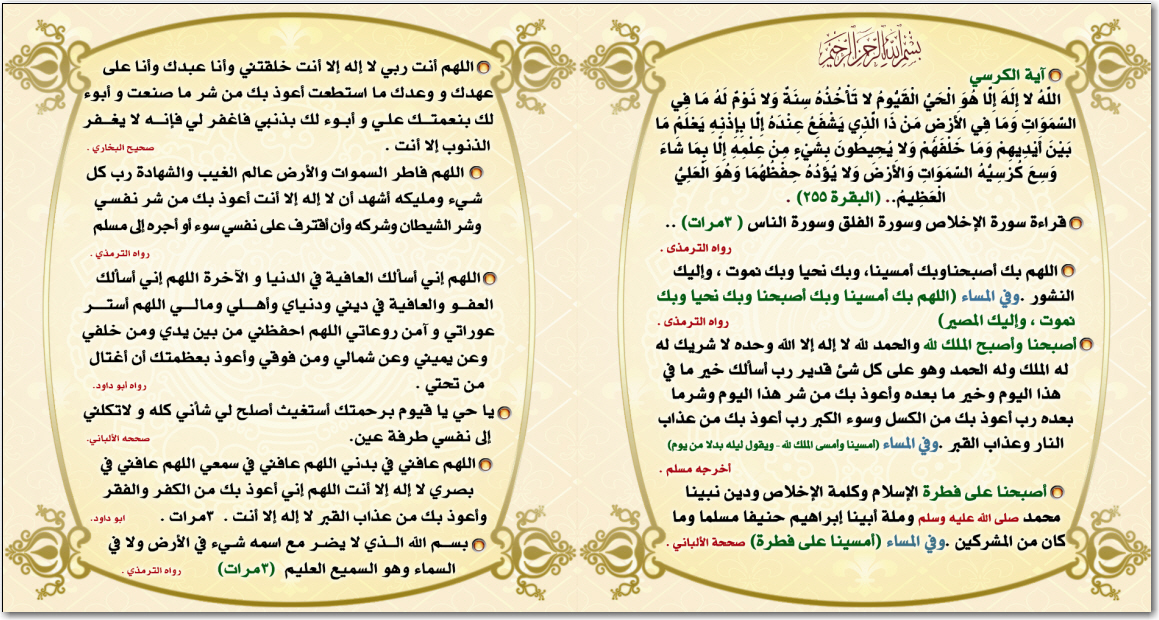 بِسْمِ اللَّهِ الرَّحْمَنِ الرَّحِيمِ
آية الكرسي
اللَّهُ لا إِلَهَ إِلَّا هُوَ الْحَيُّ الْقَيُّومُ لا تَأْخُذُهُ سِنَةٌ وَلا نَوْمٌ لَهُ مَا فِي
السَّمَوَاتِ وَمَا فِي الأَرْضِ مَنْ ذَا الَّذِي يَشْفَعُ عِنْدَهُ إِلَّا بِإِذْنِهِ يَعْلَمُ مَا
بَيْنَ أَيْدِيهِمْ وَمَا خَلْفَهُمْ وَلا يُحِيطُونَ بِشَيْءٍ مِنْ عِلْمِهِ إِلَّا بِمَا شَاءَ
وَسِعَ كُرْسِيُّهُ السَّمَوَاتِ وَالأَرْضَ وَلا يَؤُدُهُ حِفْظُهُمَا وَهُوَ الْعَلِيُّ
الْعَظِيمُ.. (البقرة ٢٥٥) .
قراءة سورة الإخلاص وسورة الفلق وسورة الناس ( ٣مرات) ..
رواه الترمذى .
اللهم بك أصبحناوبك أمسينا، وبك نحيا وبك نموت ، وإليك
النشور .وفي المساء (اللهم بك أمسينا وبك أصبحنا وبك نحيا وبك
نموت ، وإليك المصير) رواه الترمذى .
أصبحنا وأصبح الملك لله والحمد لله لا إله إلا الله وحده لا شريك له
له الملك وله الحمد وهو على كل شئ قدير رب أسألك خير ما في
هذا اليوم وخير ما بعده وأعوذ بك من شر هذا اليوم وشرما
بعده رب أعوذ بك من الكسل وسوء الكبر رب أعوذ بك من عذاب
النار وعذاب القبر .وفي المساء (أمسينا وأمسى الملك لله - ويقول ليله بدلا من يوم)
أخرجه مسلم .
أصبحنا على فطرة الإسلام وكلمة الإخلاص ودين نبينا
محمد صلى الله عليه وسلم وملة أبينا إبراهيم حنيفا مسلما وما
كان من المشركين .وفي المساء (أمسينا على فطرة) صححة الألباني .
اللهم أنت ربي لا إله إلا أنت خلقتني وأنا عبدك وأنا على
عهدك و وعدك ما استطعت أعوذ بك من شر ما صنعت و أبوء
لك بنعمتـك علـي و أبـوء لك بذنبي فاغفر لي فإنـه لا يغـفر
الذنوب إلا أنت . صحيح البخاري .
اللهم فاطر السموات والأرض عالم الغيب والشهادة رب كل
شـيء ومليكه أشهد أن لا إله إلا أنت أعوذ بك من شر نفسـي
وشر الشيطان وشركه وأن أقترف على نفسي سوء أو أجره إلى مسلم
رواه الترمذي .
اللهم إني أسألك العافية في الدنيا و الآخرة اللهم إني أسألك
العفـو والعافية في ديني ودنياي وأهـلي ومالـي اللهم أستـر
عوراتي و آمن روعاتي اللهم احفظني من بين يدي ومن خلفي
وعن يميني وعن شمالي ومن فوقي وأعوذ بعظمتك أن أغتال
من تحتي . رواه أبو داود.
يا حي يا قيوم برحمتك أستغيث أصلح لي شأني كله و لاتكلني
إلى نفسي طرفة عين. صححه الألباني.
اللهم عافني في بدني اللهم عافني في سمعي اللهم عافني في
بصري لا إله إلا أنت اللهم إني أعوذ بك من الكفر والفقر
وأعوذ بك من عذاب القبر لا إله إلا أنت . ٣مرات . ابو داود.
بسـم الله الـذي لا يضـر مع اسمه شيء في الأرض ولا في
السماء وهو السميع العليم (٣مرات) رواه الترمذي .